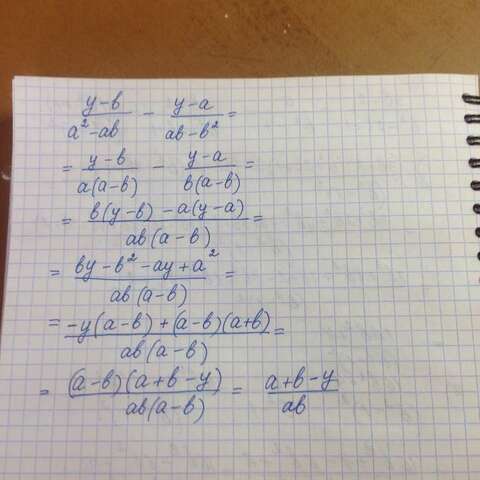 (y-b)/(a²-ab) - (y-a)/(ab-b²) =
= (y-b)/(a(a-b)) - (y-a)/(b(a-b)) =
= (b(y-b) - a(y-a))/(ab(a-b)) =
= (by-b²-ay+a²)/(ab(a-b)) =
= (-y(a-b)+(a-b)(a+b))/(ab(a-b)) =
= ((a-b)(a+b-y))/(ab(a-b)) = (a+b-y)/(ab)